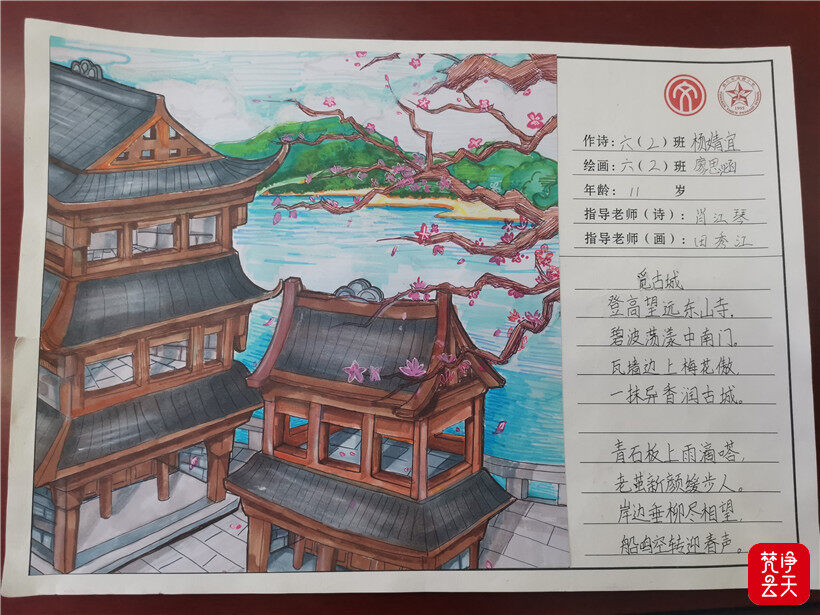 作诗：六（2）班 杨婧宜
绘画：六（2）班 廖思涵
年龄：11 岁
指导老师（诗）：肖江琴
指导老师（画）：田秀江
觅古城
登高望远东山寺，
碧波荡漾中南门。
瓦墙边上梅花傲，
一抹异香润古城。
青石板上雨滴嗒，
老茧新颜缓步人。
岸边垂柳尽相望，
船鸣笛转迎春声。
梵净
云天